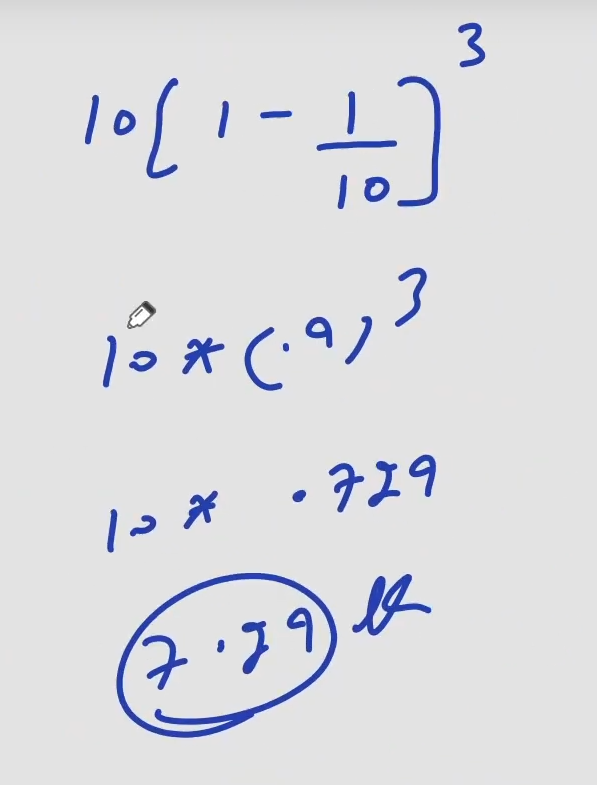 10[1 - 1/10]³
10 * (.9)³
10 * .729
7.29